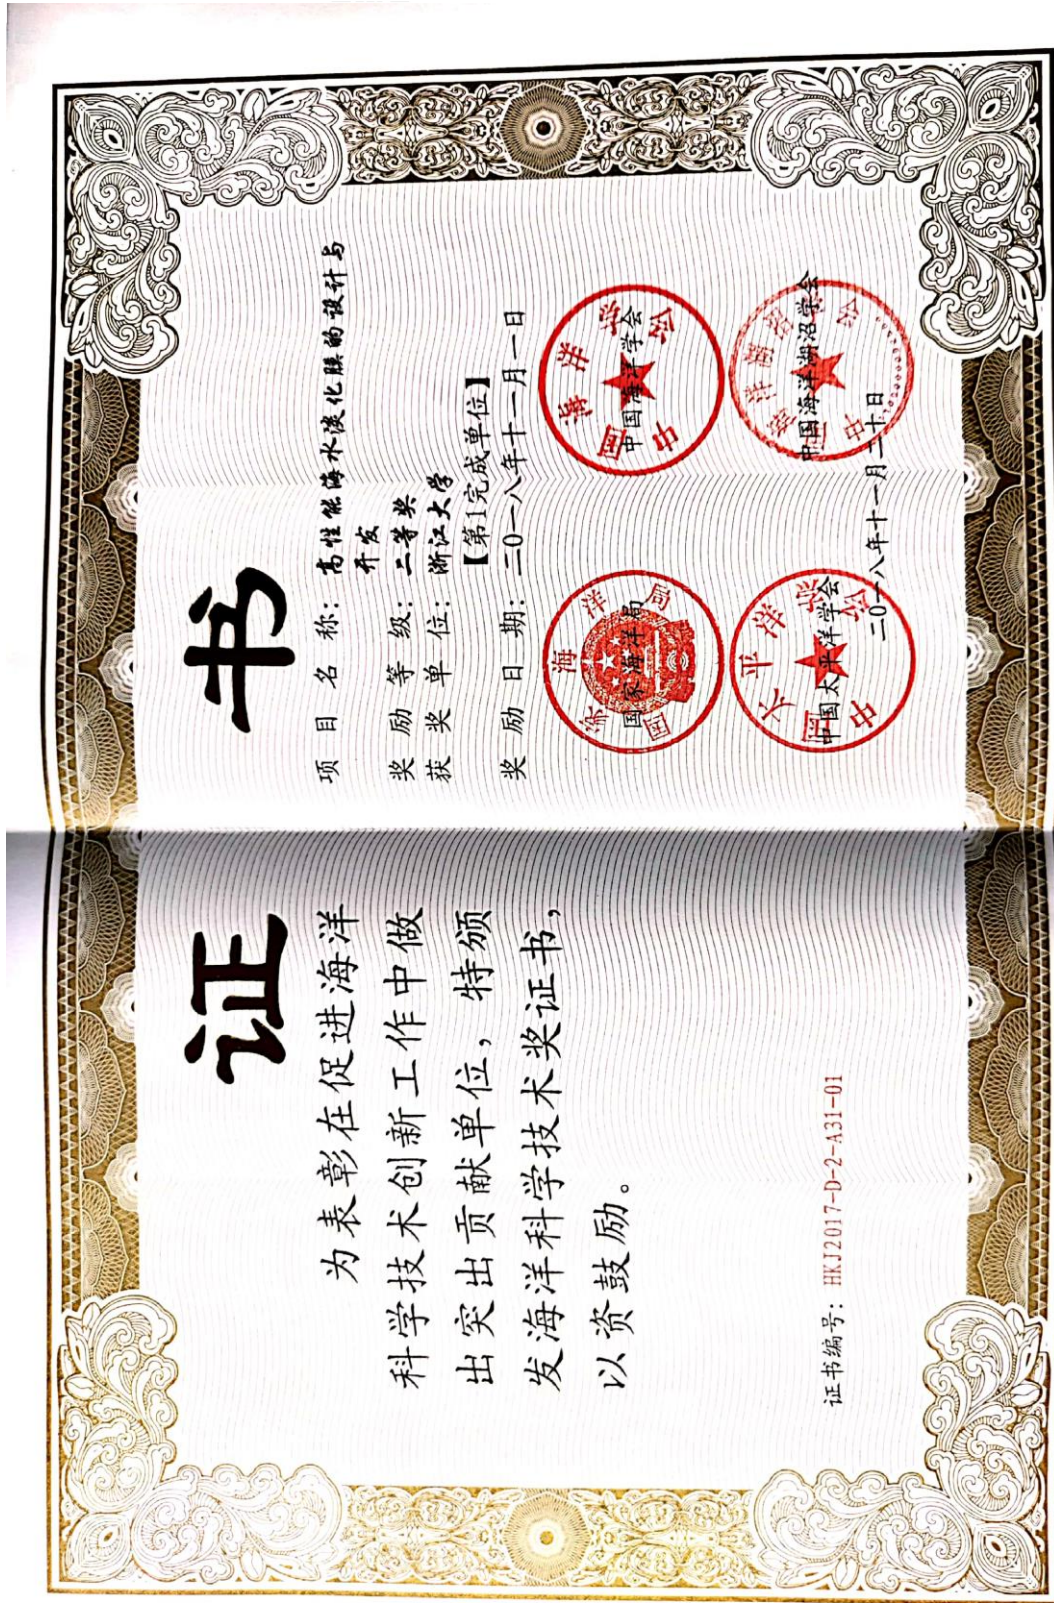 证书
为表彰在促进海洋
科学技术创新工作中做
出突出贡献单位，特颁
发海洋科学技术奖证书，
以资鼓励。
证书编号：HKJ2017-D-2-A31-01
项目名称：高性能海水淡化膜的设计与
开发
奖励等级：二等奖
获奖单位：浙江大学
【第1完成单位】
奖励日期：二〇一八年十一月一日
国家海洋局
国家海洋局
中国海洋学会
中国海洋学会
中国太平洋学会
中国太平洋学会
中国海洋湖沼学会
中国海洋湖沼学会
二〇一八年十一月二十日